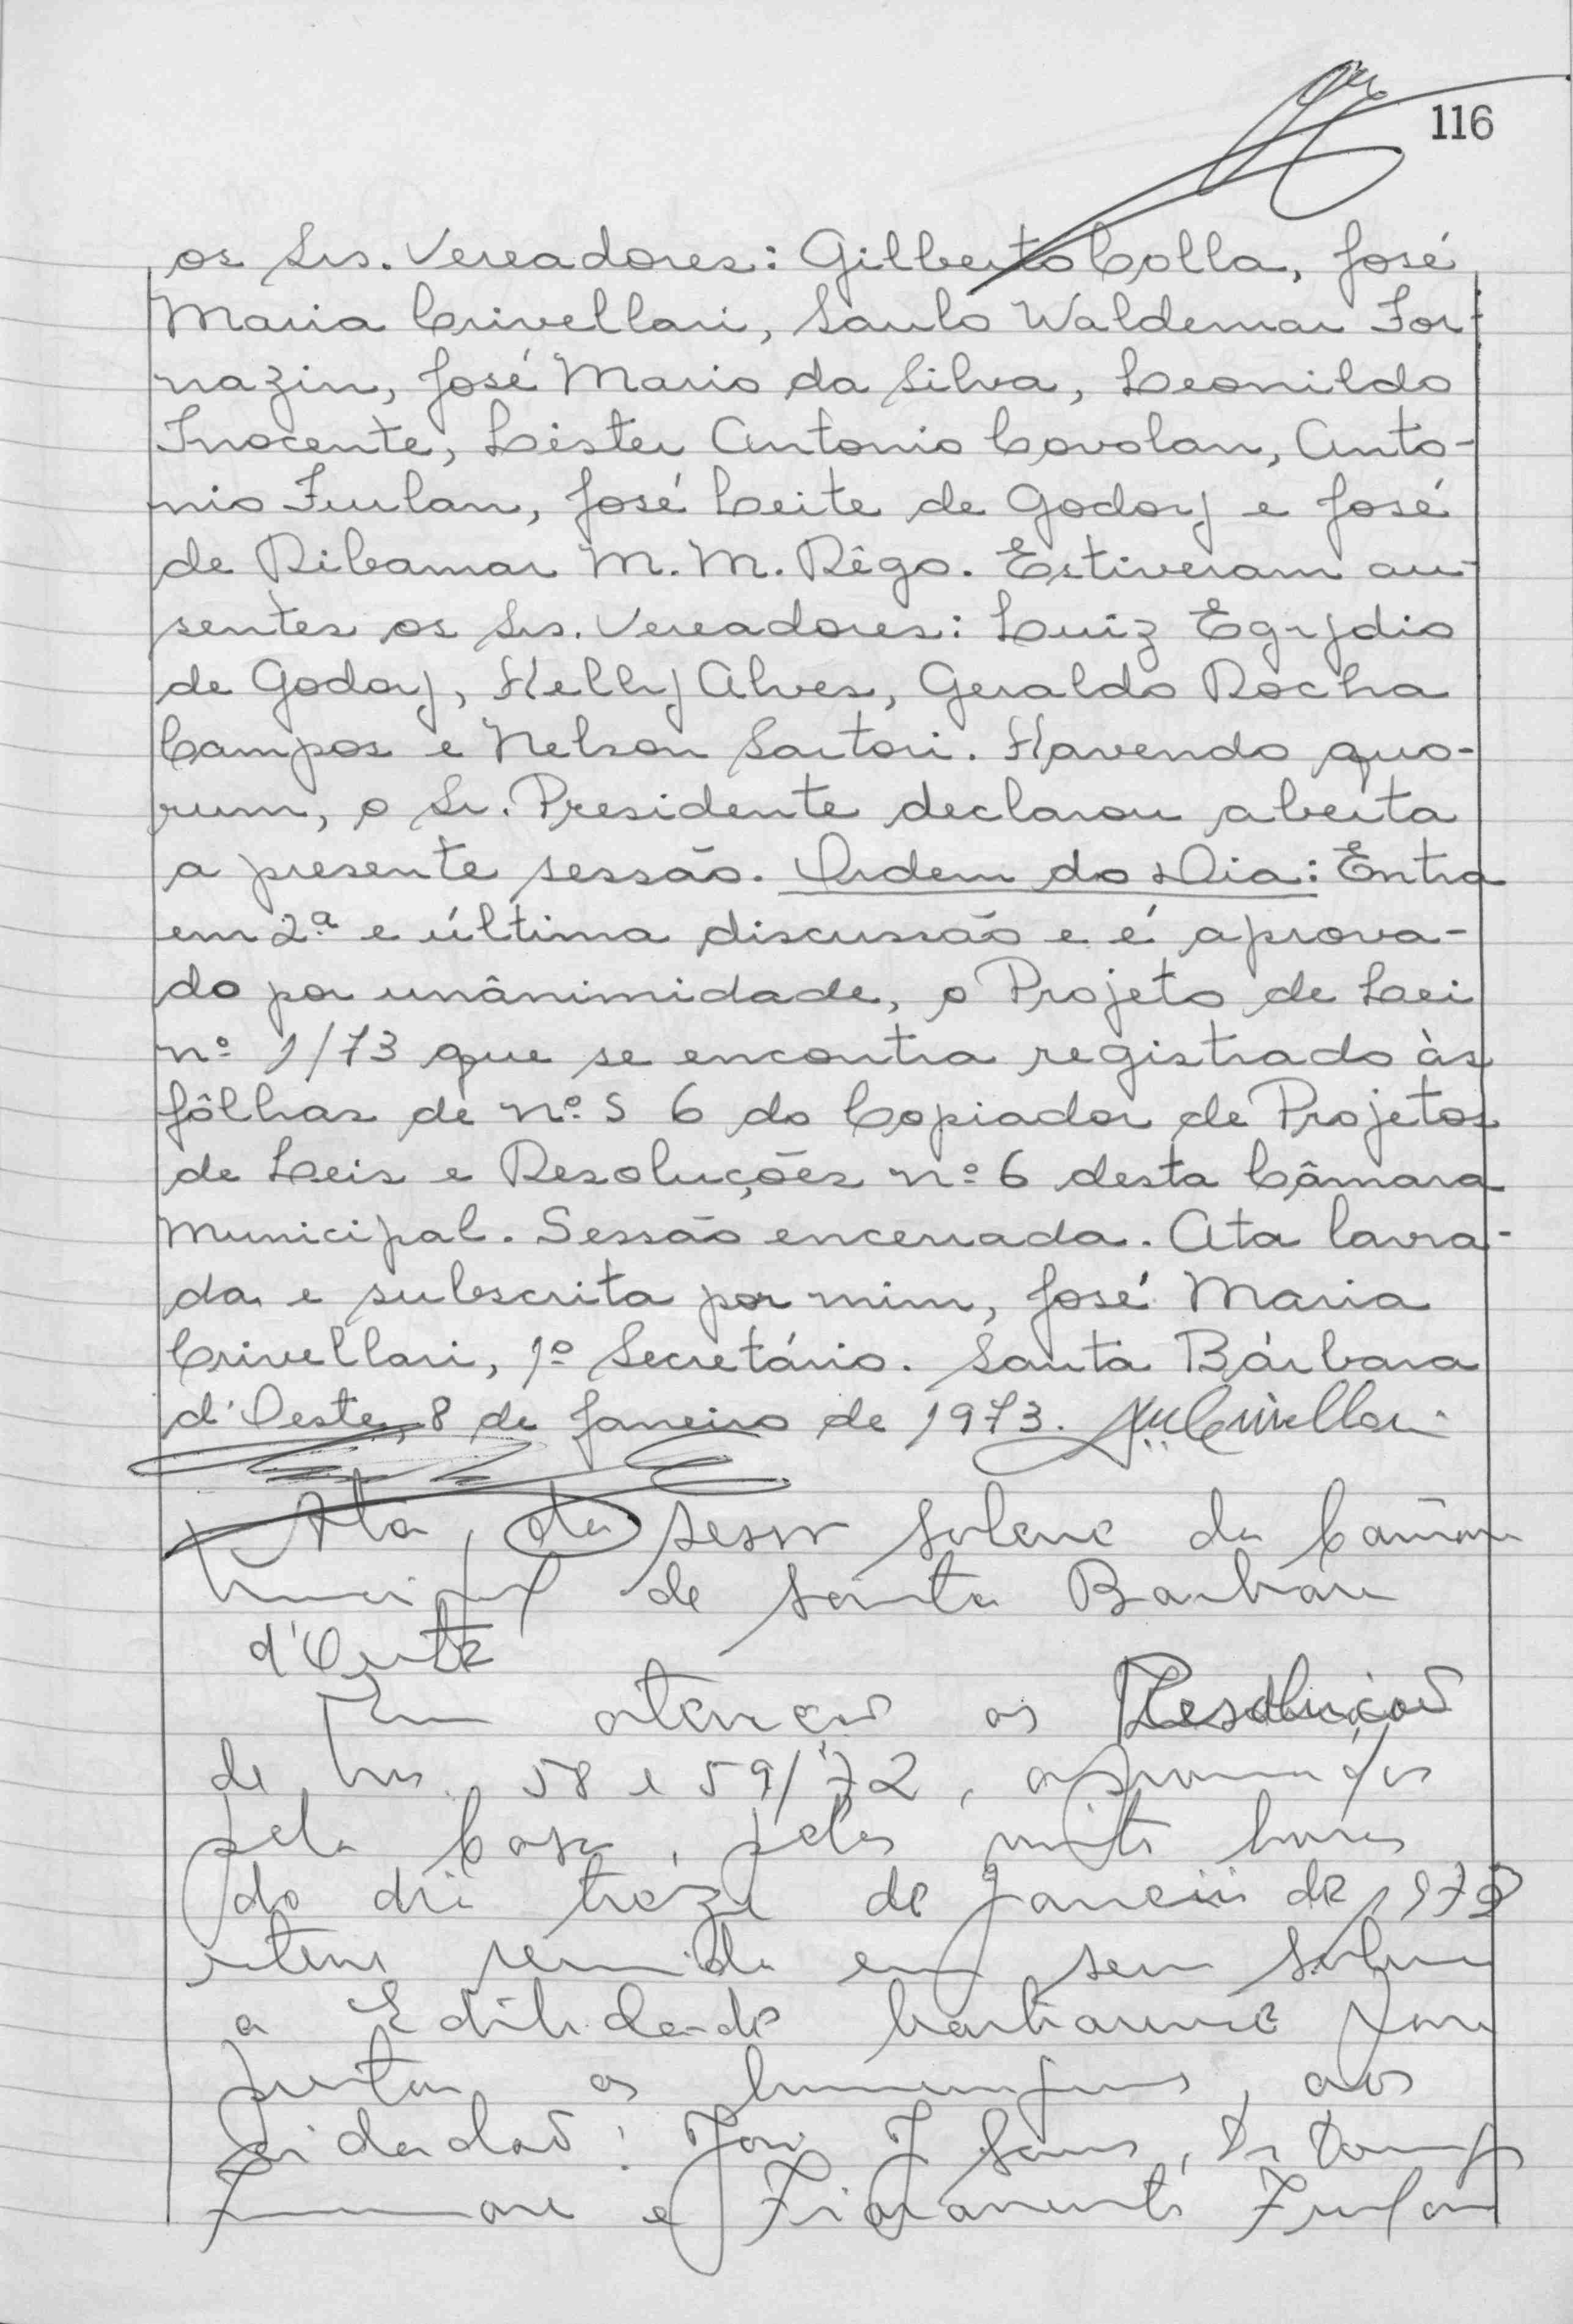 116
os Srs. Vereadores: Gilberto Colla, José
Maria Crivellari, Saulo Waldemar For-
nazin, José Mario da Silva, Leonildo
Inocente, Lister Antonio Covolan, Anto-
nio Furlan, José Leite de Godoy e José
de Ribamar M. M. Rêgo. Estiveram au-
sentes os Srs. Vereadores: Luiz Egydio
de Godoy, Helly Alves, Geraldo Rocha
Campos e Nelson Sartori. Havendo quo-
rum, o Sr. Presidente declarou aberta
a presente sessão. Ordem do Dia: Entra
em 2ª e última discussão e é aprova-
do por unânimidade, o Projeto de Lei
nº 1/73 que se encontra registrado às
fôlhas de nº 5 6 do Copiador de Projetos
de Leis e Resoluções nº 6 desta Câmara
Municipal. Sessão encerrada. Ata lavra-
da e subscrita por mim, José Maria
Crivellari, 1º Secretário. Santa Bárbara
d'Oeste, 8 de Janeiro de 1973. Crivellari
Ata da sessão solene da Camara
Municipal de Santa Barbara
d'Oeste
Em atenção as Resolução
de nos. 58 e 59/72, aprovados
pela Casa, pelas vinte horas
do dia treze de Janeiro de 1973
esteve reunida em sessão solene
a Edilidade barbarense para
prestar as homenagens, aos
cidadãos: José J. , Dr
e Fioravanti Furlan